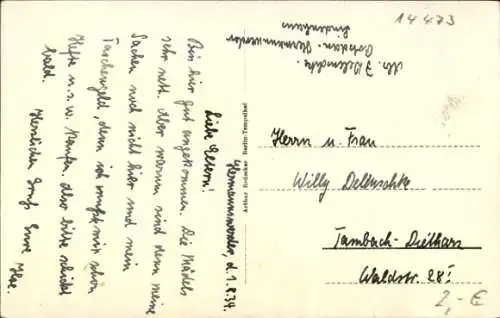 14473
Abs. J. Delluschke.
Potsdam-Hermannswerder
Lindenhaus
Hermannswerder, d. 1.8.34.
Liebe Eltern!
Bin hier gut angekommen. Die Mädels
sehr nett. Aber warum sind denn meine
Sachen noch nicht hier und mein
Taschengeld, denn ich mußte mir schon
Hefte u.s.w. kaufen. Also bitte schickt
bald. Herzlichen Gruß Eure Ilse.
Berlin-Tempelhof
Herrn u. Frau
Willy Delluschke
Tambach-Dietharz
Waldstr. 28!
2,- €